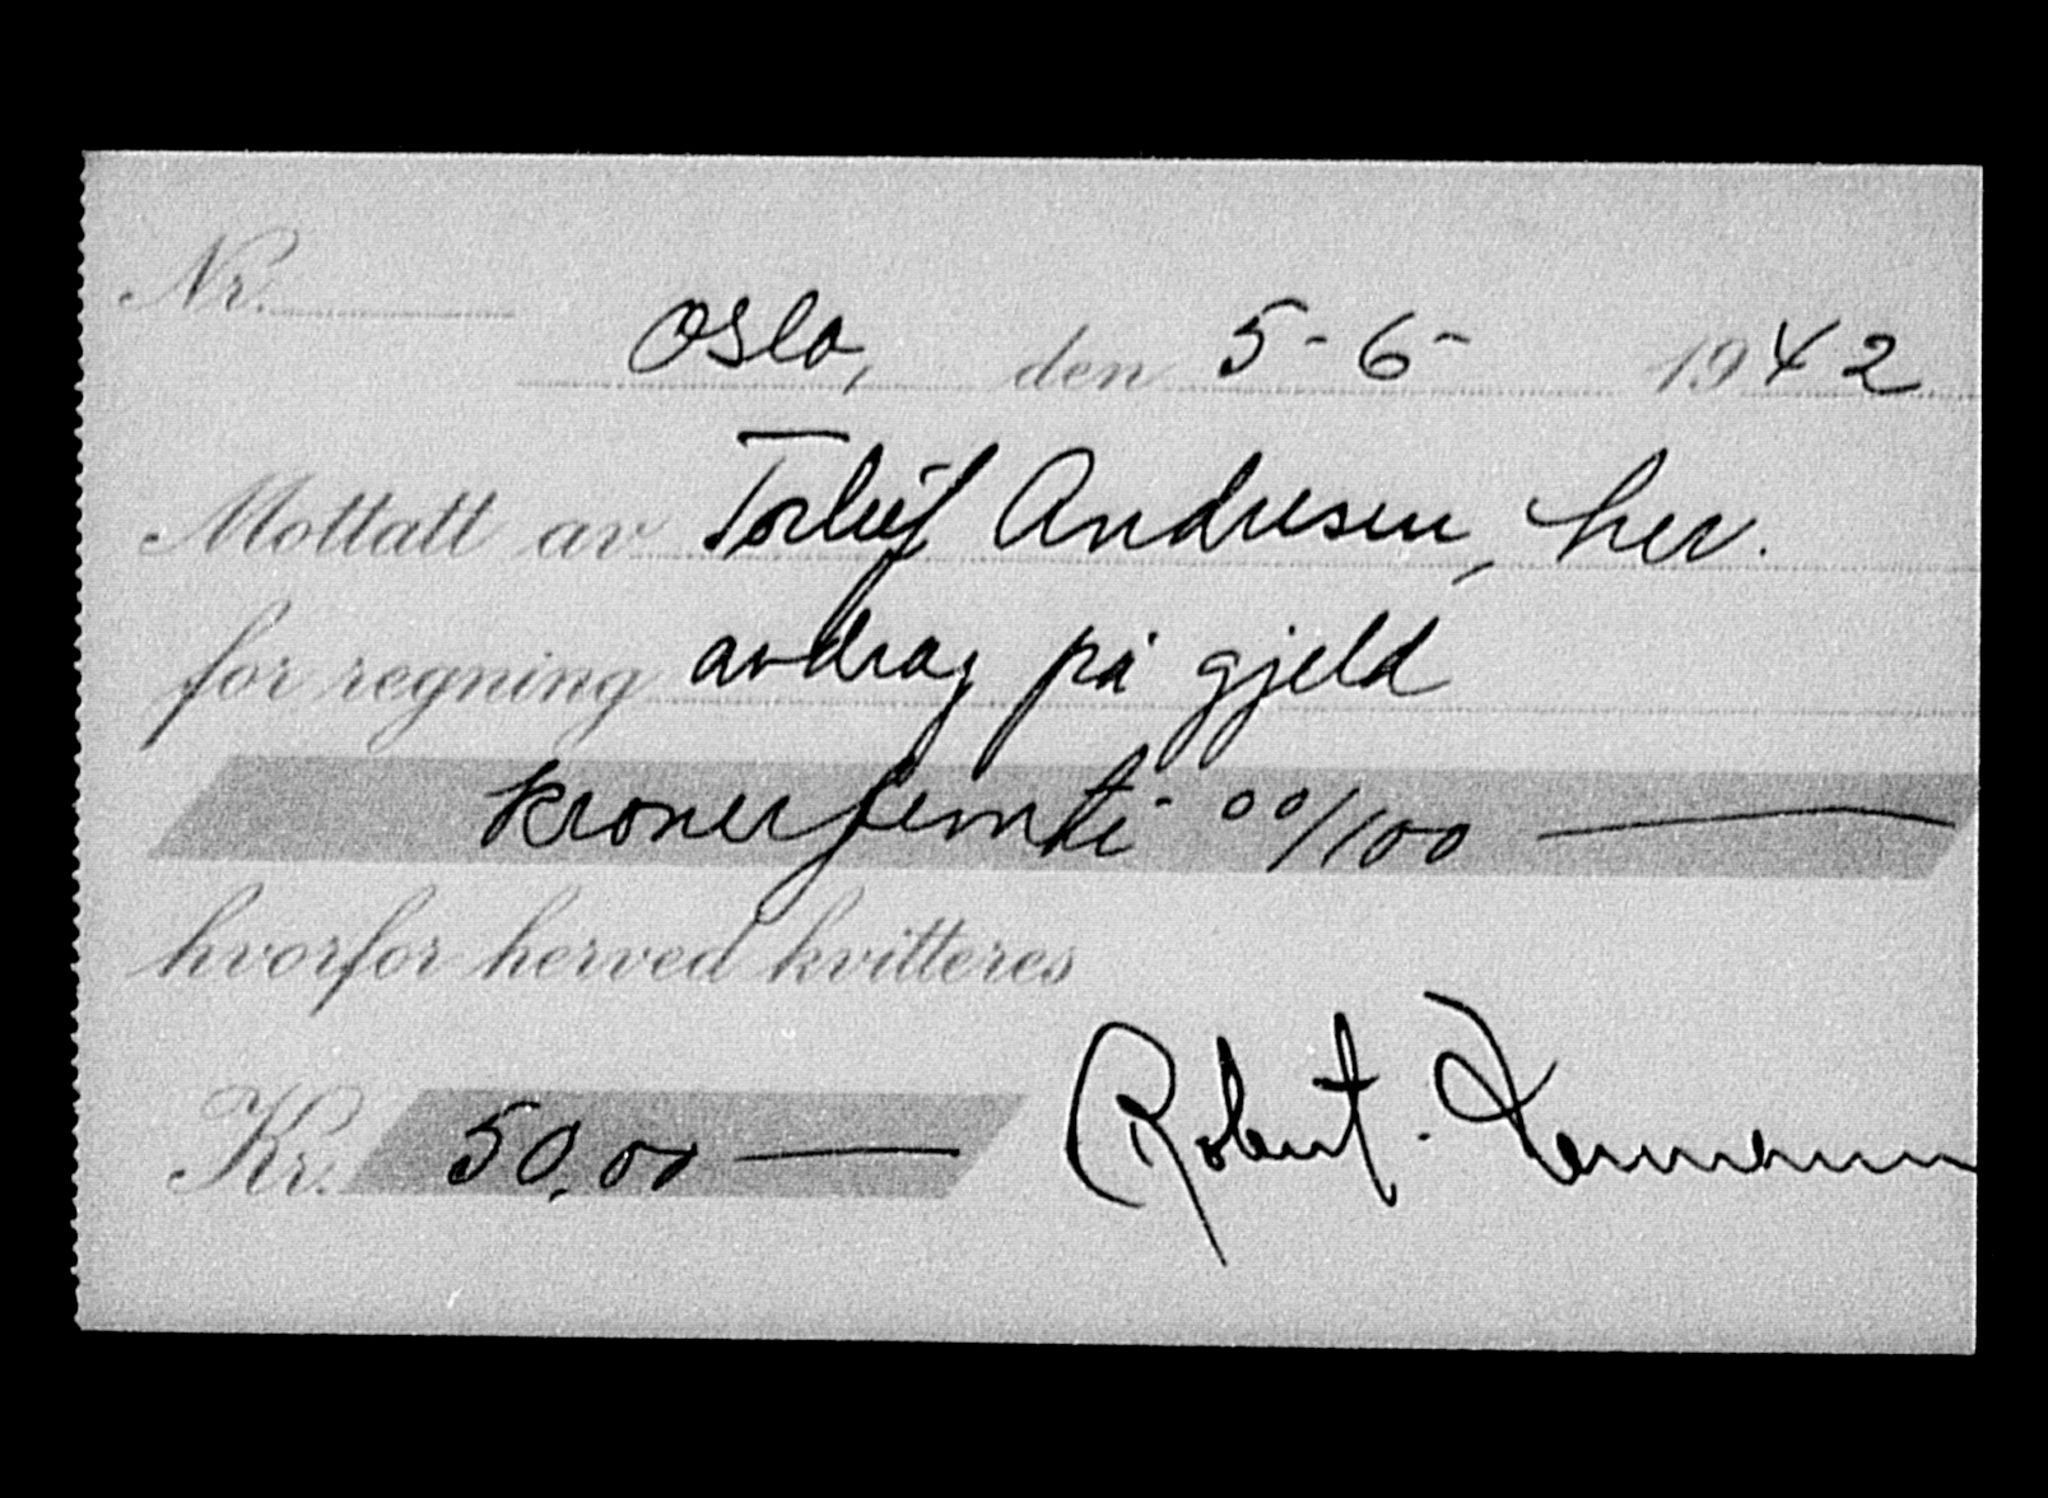 Nr.
Oslo, den 5-6- 1942
Mottatt av Torleif Andresen, her.
for regning avdrag på gjeld
kroner femti 00/100
hvorfor herved kvitteres
Kr. 50,00 Robert